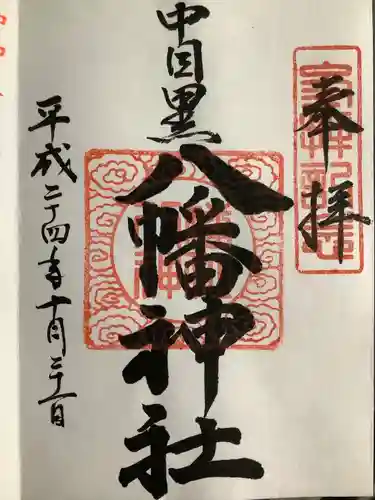 奉拝
中目黒
八幡神社
平成二十四年十月二十一日